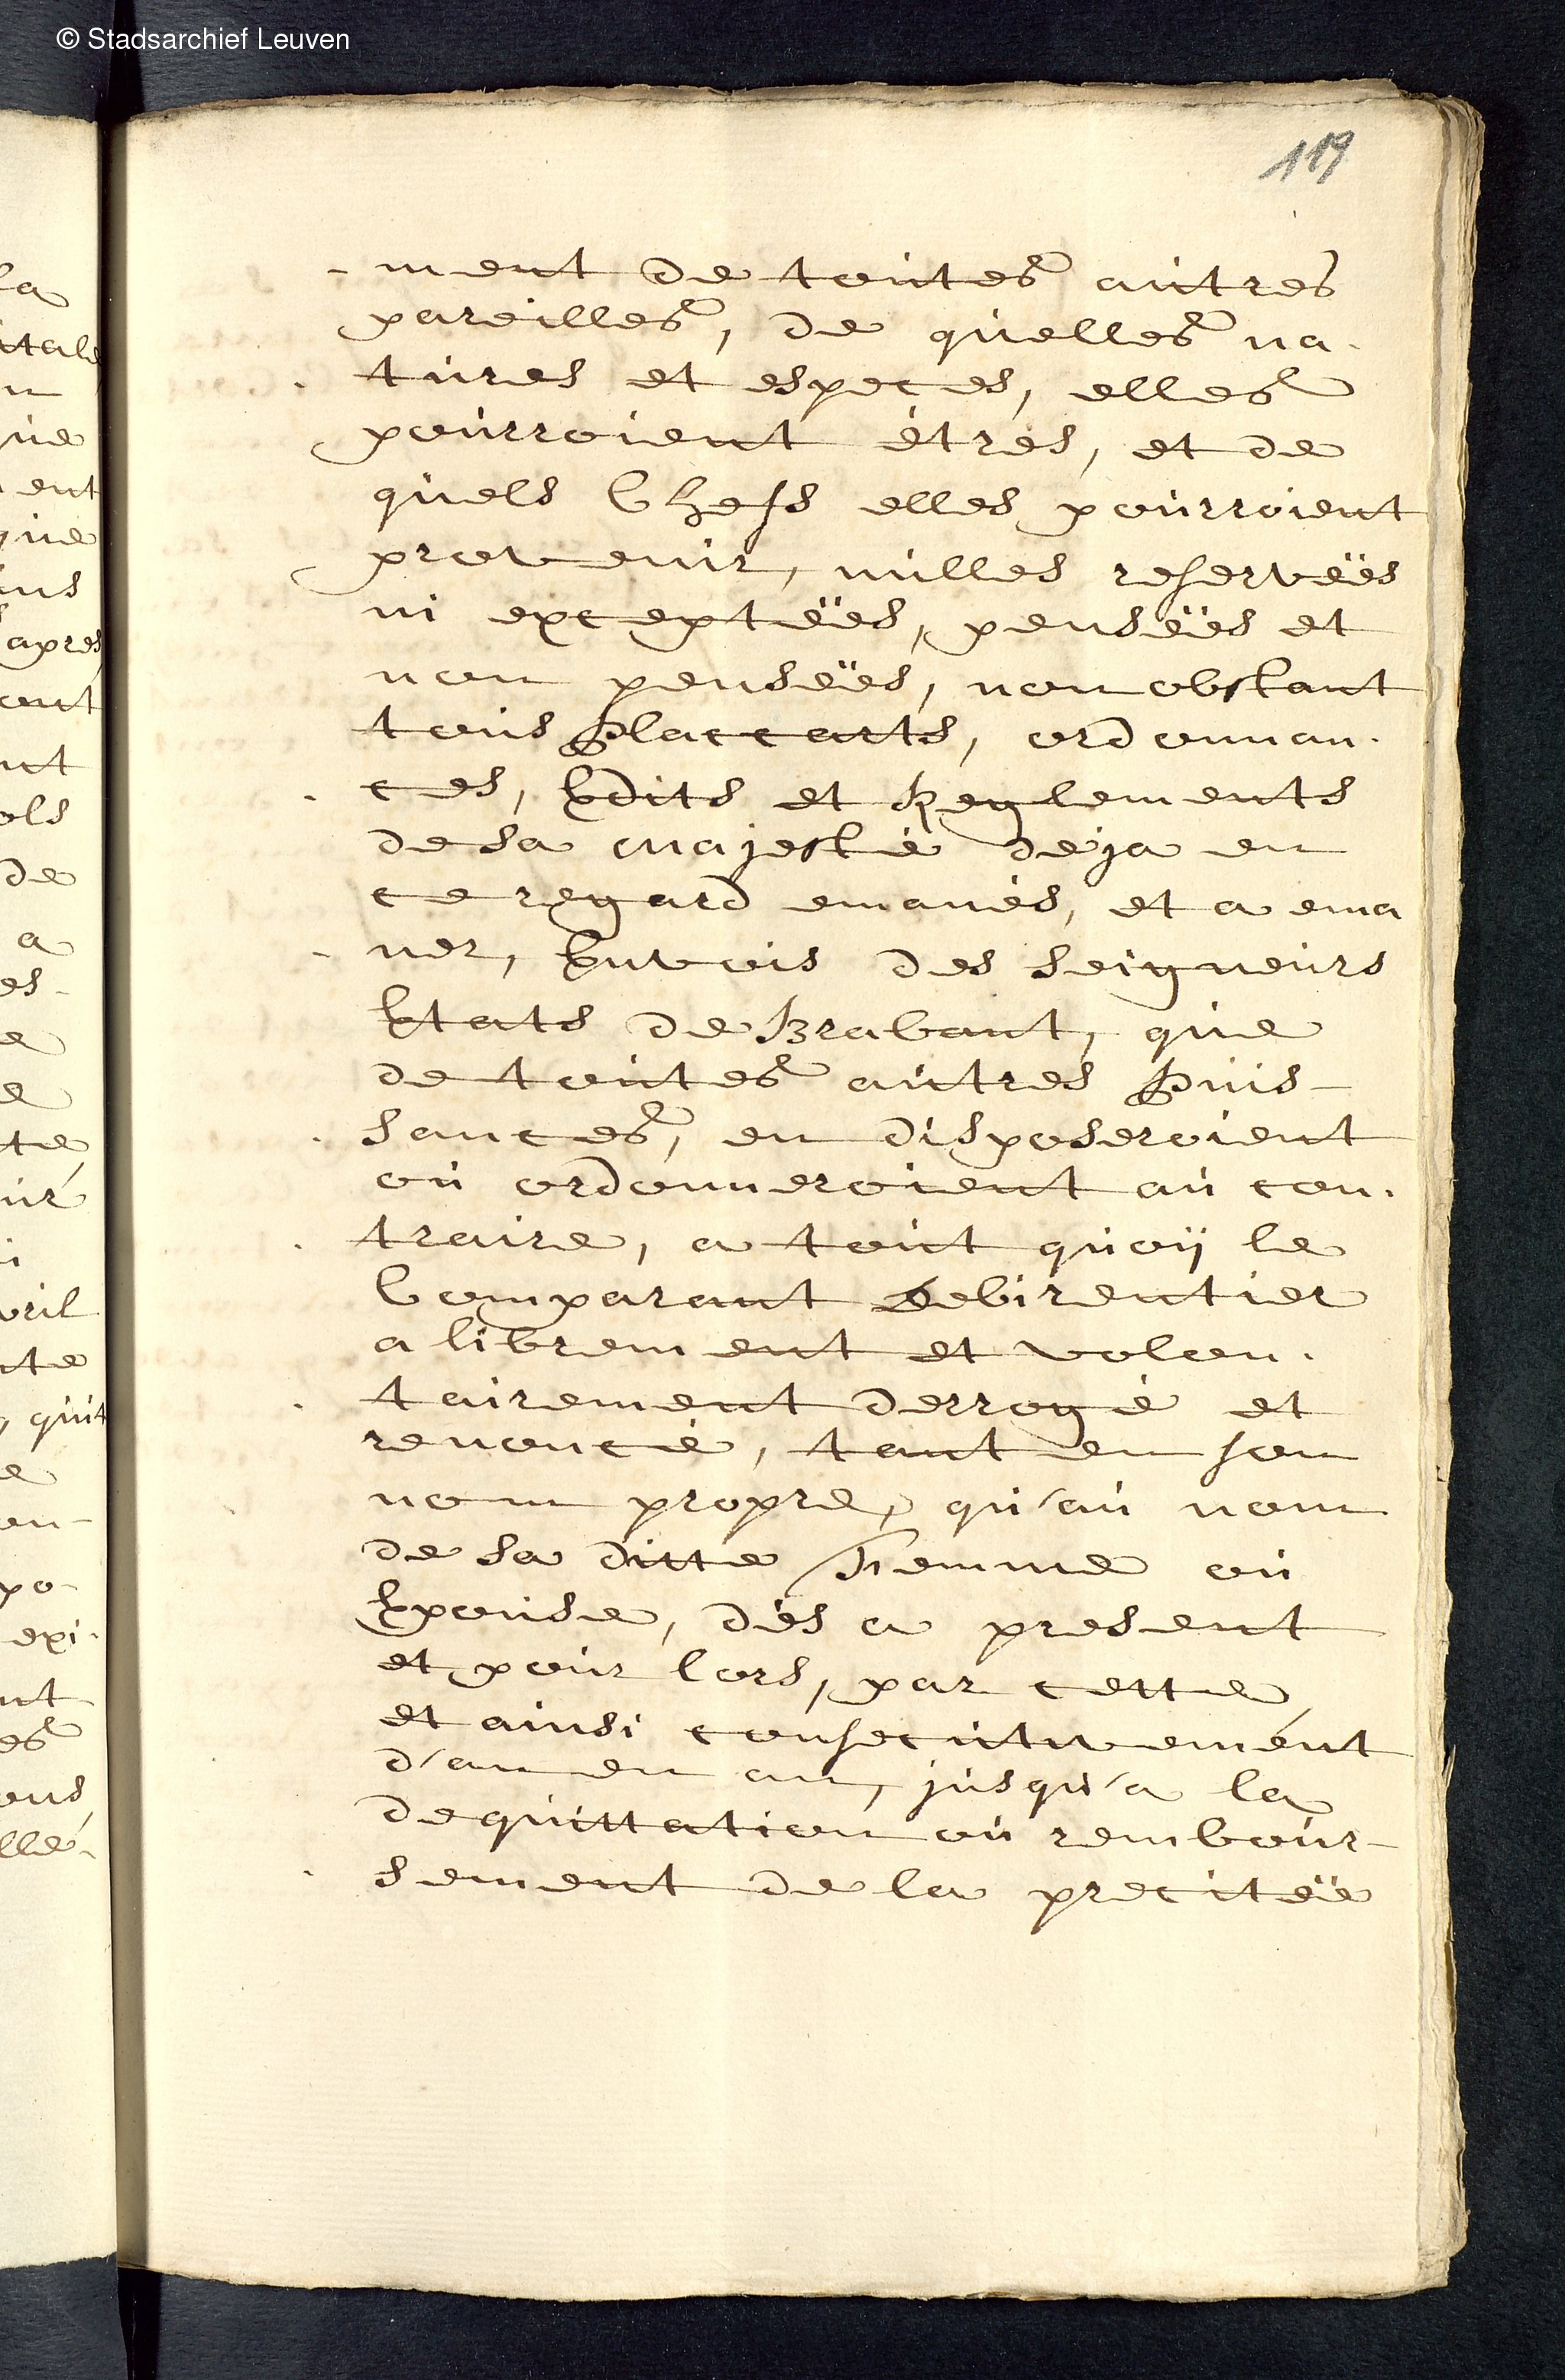 © Stadsarchief Leuven
119
-ment de toutes autres
pareilles, de quelles na-
-tures et especes, elles
pourroient étres, et de
quels Chefs elles pourroient
provenir, nulles reservéës
ni exceptéës, penséës et
non penséës, non obstant
tous Placcarts, ordonnan-
-ces, Edits et Reglements
de sa Majesté deja en
ce regard emanés, et a ema
-ner, Envois des Seigneurs
Etats de Brabant, que
de toutes autres Puis-
-sances, en disposeroient
ou ordonneroient au con-
-traire, a tout quoÿ le
Comparant debirentier
a librement et volon-
-tairement derrogé et
renoncé, tant en son
nom propre, qu'au nom
de sa ditte Femme ou
Epouse, dés a present
et pour lors, par cette
et ainsi consecutivement
d'an en an, jusqu'a la
dequittation ou rembour-
-sement de la precitéë